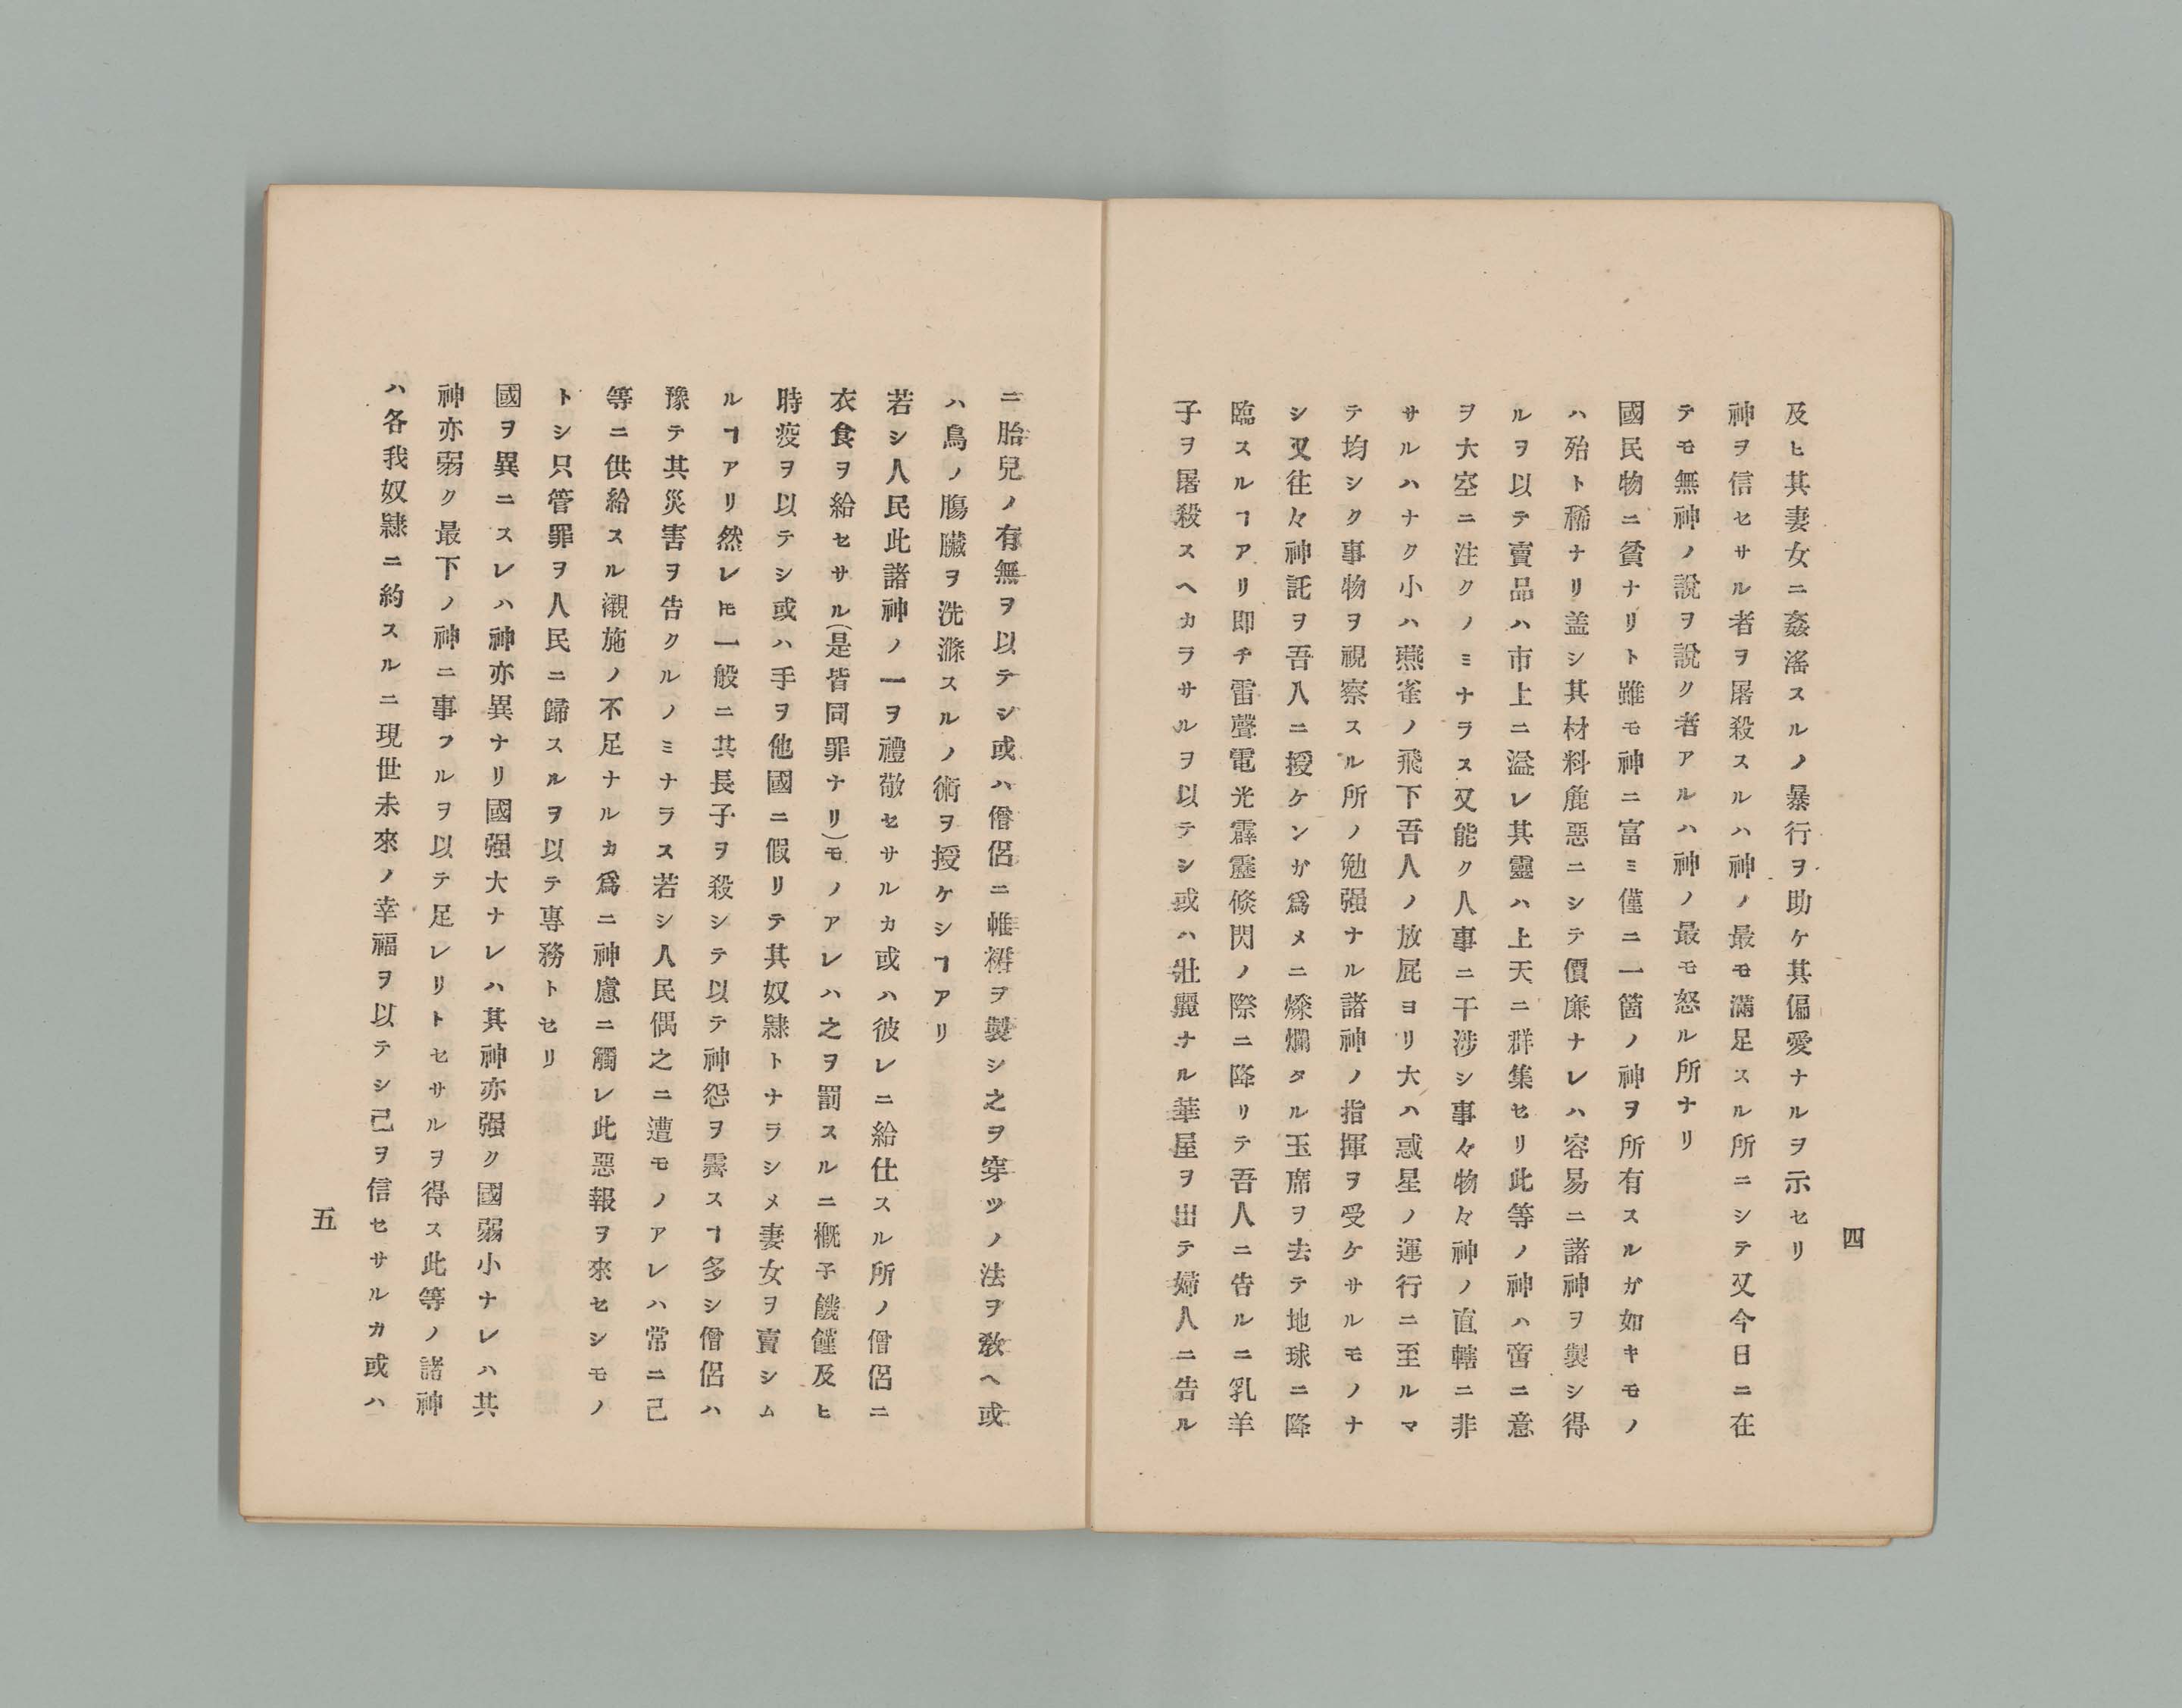 四
及ヒ其妻女ニ姦滛スルノ暴行ヲ助ケ其偏愛ナルヲ示セリ
神ヲ信セサル者ヲ屠殺スルハ神ノ最モ滿足スル所ニシテ又今日ニ在
テモ無神ノ說ヲ說ク者アルハ神ノ最モ怒ル所ナリ
國民物ニ貧ナリト雖モ神ニ富ミ僅ニ一箇ノ神ヲ所有スルガ如キモノ
ハ殆ト稀ナリ盖シ其材料麁惡ニシテ價廉ナレハ容易ニ諸神ヲ製シ得
ルヲ以テ賣品ハ市上ニ溢レ其靈ハ上天ニ群集セリ此等ノ神ハ啻ニ意
ヲ大空ニ注クノミナラス又能ク人事ニ干涉シ事々物々神ノ直轄ニ非
サルハナク小ハ燕雀ノ飛下吾人ノ放屁ヨリ大ハ惑星ノ運行ニ至ルマ
テ均シク事物ヲ視察スル所ノ勉强ナル諸神ノ指揮ヲ受ケサルモノナ
シ又往々神託ヲ吾人ニ授ケンガ爲メニ燦爛タル玉席ヲ去テ地球ニ降
臨スルヿアリ即チ雷聲電光霹靂倐閃ノ際ニ降リテ吾人ニ告ルニ乳羊
子ヲ屠殺スヘカラサルヲ以テシ或ハ壯麗ナル華屋ヲ出テ婦人ニ告ル
ニ胎兒ノ有無ヲ以テシ或ハ僧侶ニ帷裙ヲ製シ之ヲ穿ツノ法ヲ敎ヘ或
ハ鳥ノ膓臟ヲ洗滌スルノ術ヲ授ケシヿアリ
若シ人民此諸神ノ一ヲ禮敬セサルカ或ハ彼レニ給仕スル所ノ僧侶ニ
衣食ヲ給セサル(是皆同罪ナリ)モノアレハ之ヲ罰スルニ概子饑饉及ヒ
時疫ヲ以テシ或ハ手ヲ他國ニ假リテ其奴隷トナラシメ妻女ヲ賣シム
ルヿアリ然レㇳモ一般ニ其長子ヲ殺シテ以テ神怨ヲ霽スヿ多シ僧侶ハ
豫テ其災害ヲ告クルノミナラス若シ人民偶之ニ遭モノアレハ常ニ己
等ニ供給スル襯施ノ不足ナルカ爲ニ神慮ニ觸レ此惡報ヲ來セシモノ
トシ只管罪ヲ人民ニ歸スルヲ以テ專務トセリ
國ヲ異ニスレハ神亦異ナリ國强大ナレハ其神亦强ク國弱小ナレハ其
神亦弱ク最下ノ神ニ事フルヲ以テ足レリトセサルヲ得ス此等ノ諸神
ハ各我奴隷ニ約スルニ現世未來ノ幸福ヲ以テシ己ヲ信セサルカ或ハ
五